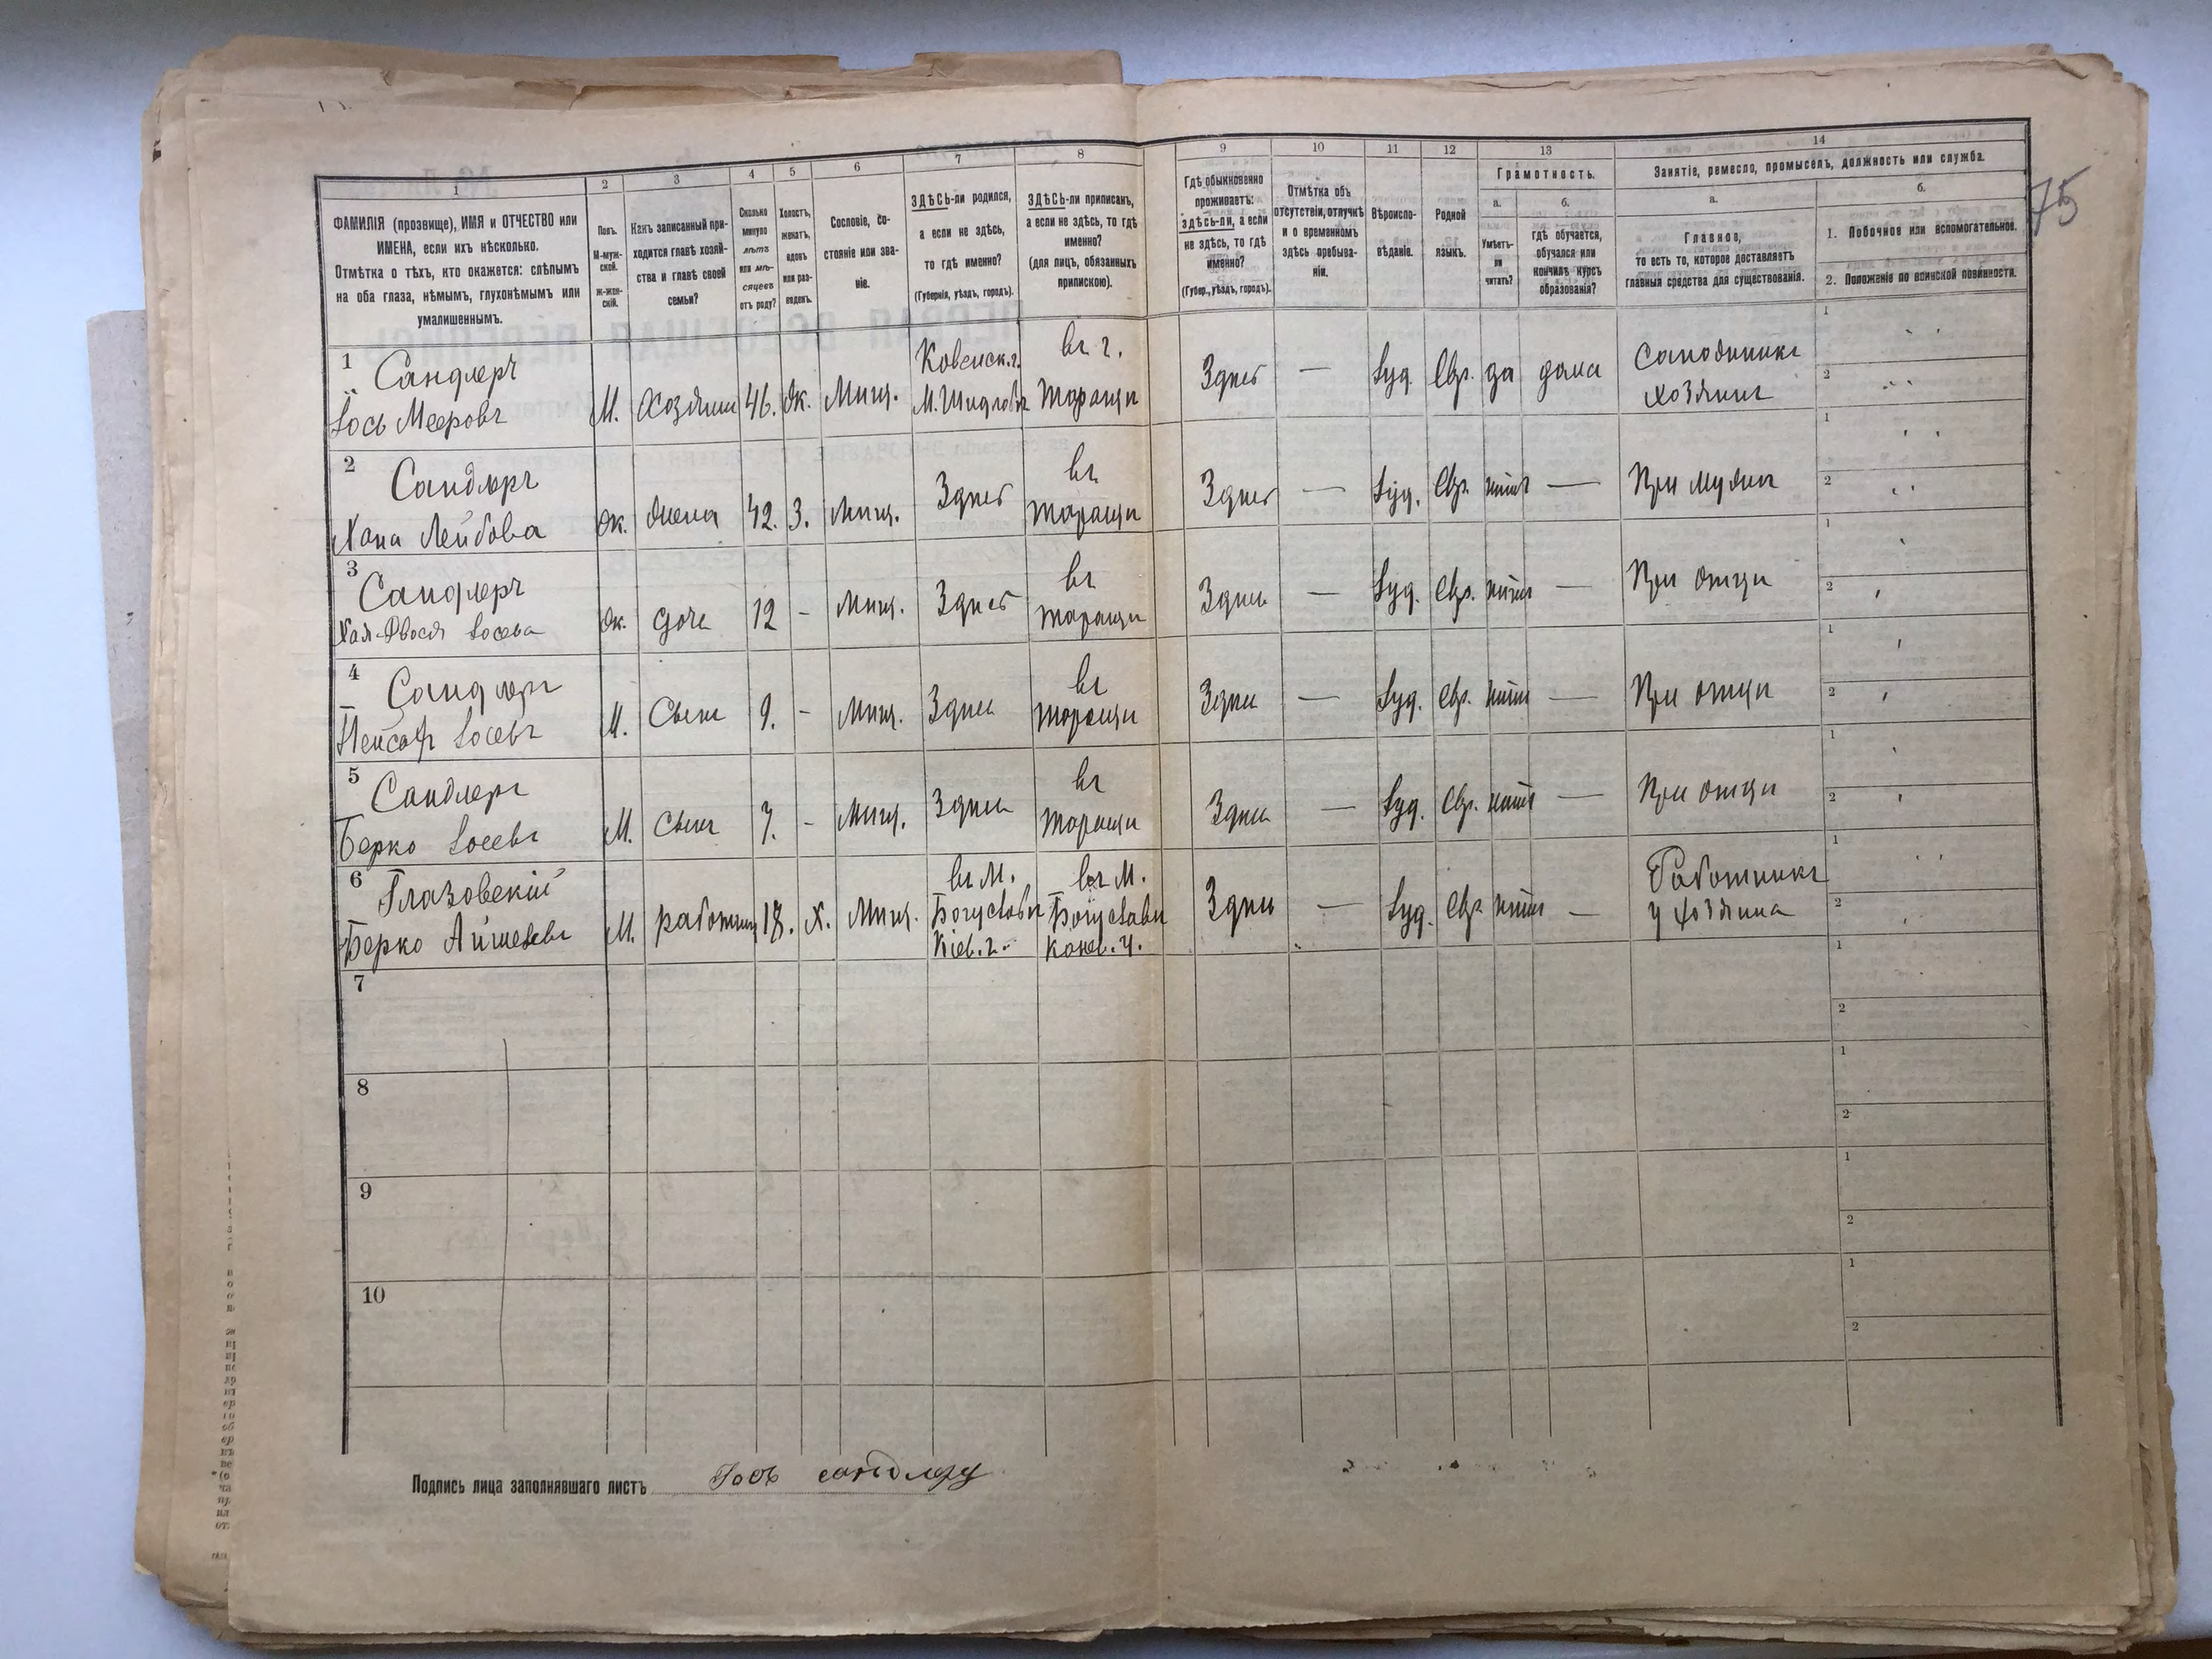 75
1
2
3
4
5
6
7
8
9
10
11
12
13
14
ФАМИЛІЯ (прозвище), ИМЯ и ОТЧЕСТВО или
ИМЕНА, если ихъ нѣсколько.
Отмѣтка о тѣхъ, кто окажется: слѣпымъ
на оба глаза, нѣмымъ, глухонѣмымъ или
умалишеннымъ.
Полъ.
М-муж-
ской.
ж-жен-
скій.
Какъ записанный при-
ходится главѣ хозяй-
ства и главѣ своей
семьи?
Сколько
минуло
лѣтъ
или мѣ-
сяцевъ
отъ роду?
Холостъ,
женатъ,
вдовъ
или раз-
веденъ.
Сословіе, со-
стояніе или зва-
ніе.
ЗДѢСЬ-ли родился,
а если не здѣсь,
то гдѣ именно?
(Губернія, уѣздъ, городъ).
ЗДѢСЬ-ли приписанъ,
а если не здѣсь, то гдѣ
именно?
(для лицъ, обязанныхъ
припискою).
Гдѣ обыкновенно
проживаетъ:
здѣсь-ли, а если
не здѣсь, то гдѣ
именно?
(Губер., уѣздъ, городъ).
Отмѣтка объ
отсутствіи, отлучкѣ
и о временномъ
здѣсь пребыва-
ніи.
Вѣроиспо-
вѣданіе.
Родной
языкъ.
Грамотность.
а.
Умѣетъ-
ли
читать?
б.
гдѣ обучается,
обучался или
кончилъ курсъ
образованія?
Занятіе, ремесло, промыселъ, должность или служба.
а.
Главное,
то есть то, которое доставляетъ
главныя средства для существованія.
б.
1. Побочное или вспомогательное.
2. Положеніе по воинской повинности.
1 Сандлеръ
Іось Мееровъ
М. Хозяинъ 46. Ж. Мищ. Ковенск.г. въ г. Таращи
Здѣсь — Іуд. Евр. да дома Сапожникъ
хозяинъ
2 Сандлеръ
Хана Лейбова
Ж. Жена 42. З. Мищ. Здѣсь въ Таращи
Здѣсь — Іуд. Евр. нѣтъ — При мужи
3 Сандлеръ
Хая-Двося Іосева
Ж. Дочь 12 - Мищ. Здѣсь въ Таращи
Здѣсь — Іуд. Евр. нѣтъ — При отци
4 Сандлеръ
Іосевъ
М. Сынъ 9. - Мищ. Здѣсь въ Таращи
Здѣсь — Іуд. Евр. нѣтъ — При отци
5 Сандлеръ
Берко Іосевъ
М. Сынъ 7. - Мищ. Здѣсь въ Таращи
Здѣсь — Іуд. Евр. нѣтъ — При отци
6 Глазовскій
Берко
М. работник 18. Х. Мищ. въ М. Богуславѣ Кіев. г. въ М. Богуслави Канев. у.
Здѣсь — Іуд. Евр. нѣтъ — Работникъ
у хозяина
7
8
9
10
Подпись лица заполнявшаго листъ Іось сандлер